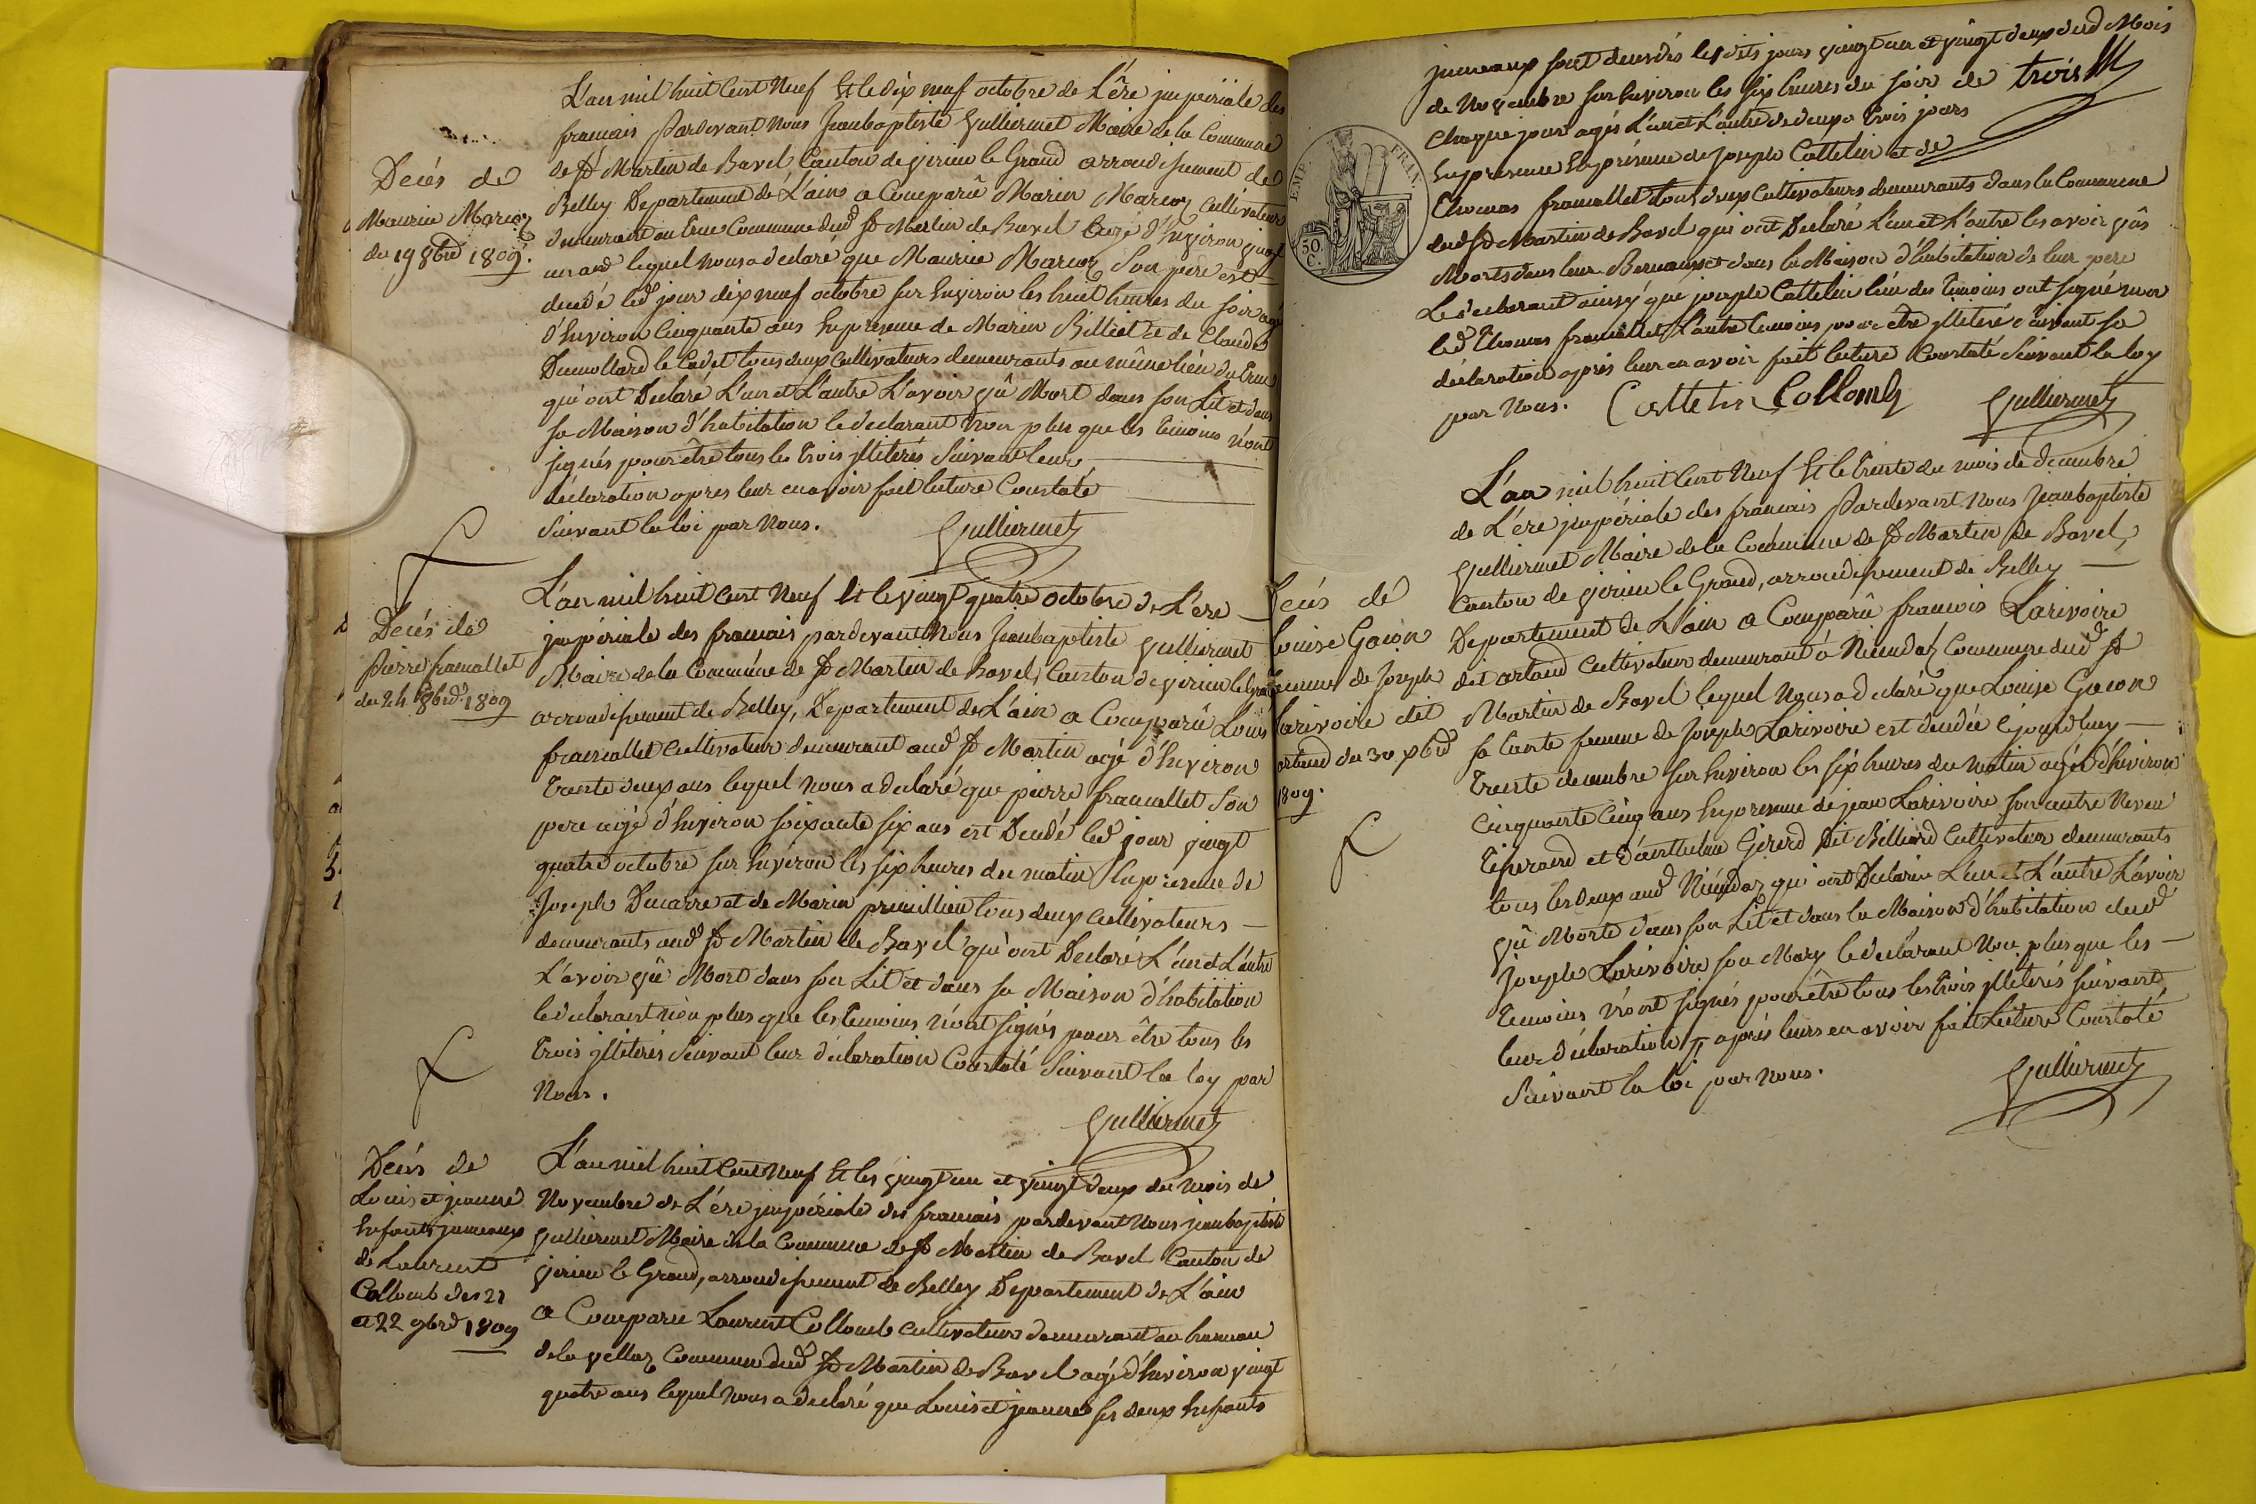 Décés de
Maurice Marcoz
du 19 8bre 1809.
L'an mil huit Cent Neuf Et le dix neuf octobre de L'ère jmpériale des
francais Pardevant Nous Jeanbaptiste Gulliermet Maire de la Commune
de St Martin de Bavel Canton de virieu le Grand arrondissement de
Belley Departement de L'ain a Comparû Marin Marcoz Cultivateur
demeurant au Commune dud St Martin de Bavel agé d'Environ vingt
un ans lequel nous a declaré que Maurice Marcoz Son pere est
decedé led jour dix neuf octobre sur Environ les huit heures du soir agé
d'Environ Cinquante ans En presence de Marin Billiet et de Claude
Dumollard le Cadet tous deux Cultivateurs demeurants au même lieu
qui ont Declaré L'un et L'autre L'avoir vû Mort dans son Lit et dans
sa Maison d'habitation le declarant Non plus que les temoins n'ont
signés pour être tous les trois jlliterés Suivant leur
déclaration apres leur en avoir fait lecture Constaté
Suivant la loi par Nous. Gulliermet
Décés de
Pierre francallet
du 24 8bre 1809
L'an mil huit Cent Neuf Et le vingt quatre octobre de L'ere
jmpériale des francais pardevant Nous Jeanbaptiste Gulliermet
Maire de la Commune de St Martin de Bavel, Canton de virieu le Grand
arrondissement de Belley, Departement de L'ain a Comparû Louis
francallet Cultivateur demeurant aud St Martin agé d'Environ
Trente deux ans lequel nous a declaré que pierre francallet Son
pere agé d'Environ soixante six ans est Decedé led jour vingt
quatre octobre sur Environ les six heures du matin En presence de
Joseph Ducarre et de Marin tous deux Cultivateurs
demeurants aud St Martin de Bavel qui ont Declaré L'un et L'autre
L'avoir vû Mort dans son Lit et dans sa Maison d'habitation
le declarant non plus que les temoins n'ont signés pour être tous les
trois jlliterés Suivant leur déclaration Constaté Suivant la loy par
Nous.
Gulliermet
Décés de
Louis et jeanne
Enfants jumeaux
de Laurent
Collomb des 21
et 22 9bre 1809
L'an mil huit Cent Neuf Et les vingt un et vingt deux du mois de
Novembre de L'ére jmpériale des francais pardevant Nous jeanbaptiste
Gulliermet Maire de la Commune de St Martin de Bavel Canton de
virieu le Grand, arrondissement de Belley Departement de L'ain
a Comparu Laurent Collomb cultivateur demeurant au hameau
de la vellaz Commune dud St Martin de Bavel agé d'Environ vingt
quatre ans lequel nous a declaré que Louis et jeanne ses deux Enfants
jumeaux sont decedés lesdits jours vingt un et vingt deux dud Mois
de Novembre sur Environ les six heures du soir de trois
Chaque jour agés L'un et L'autre de deux a trois jours
En presence En présence de Joseph Cattelin et de
Thomas francallet tous deux Cultivateurs demeurants dans la Commune
dud St Martin de Bavel qui ont Declaré L'un et L'autre les avoir vûs
Morts dans leur Berceaux et dans la Maison d'habitation de leur pere
Le declarant ainsy que joseph Cattelin l'un des temoins ont signé non
led Thomas francallet L'autre temoins pour etre jlliteré Suivant sa
déclaration après leur en avoir fait lecture Constaté Suivant la loy
par Nous. Cattelin Collomb Gulliermet
EMP. FRAN.
50.
C.
Decés de
Louise Gacon
femme de Joseph
Larivoire dit
artaud du 30 xbre
1809.
L'an mil huit Cent Neuf Et le trente du mois de decembre
de L'ére jmpériale des francais Pardevant Nous Jeanbaptiste
Gulliermet Maire de la Commune de St Martin de Bavel,
Canton de virieu le Grand, arrondissement de Belley
Departement de L'ain a Comparû francois Larivoire
dit artaud Cultivateur demeurant à Commune dud St
Martin de Bavel lequel Nous a declaré que Louise Gacon
sa tante femme de Joseph Larivoire est decedée
trente decembre sur Environ les six heures du matin agée d'Environ
Cinquante Cinq ans En presence de jean Larivoire son autre Neveu
et Gérard dit Billiard Cultivateur demeurants
tous les deux aud qui ont Declaré L'un et L'autre L'avoir
vû Morte dans son Lit et dans la Maison d'habitation dud
Joseph Larivoire son Mary le declarant Non plus que les
temoins n'ont signés pour être tous les trois jlliterés Suivant
leur déclaration après leurs en avoir fait Lecture Constaté
Suivant la loi par nous. Gulliermet